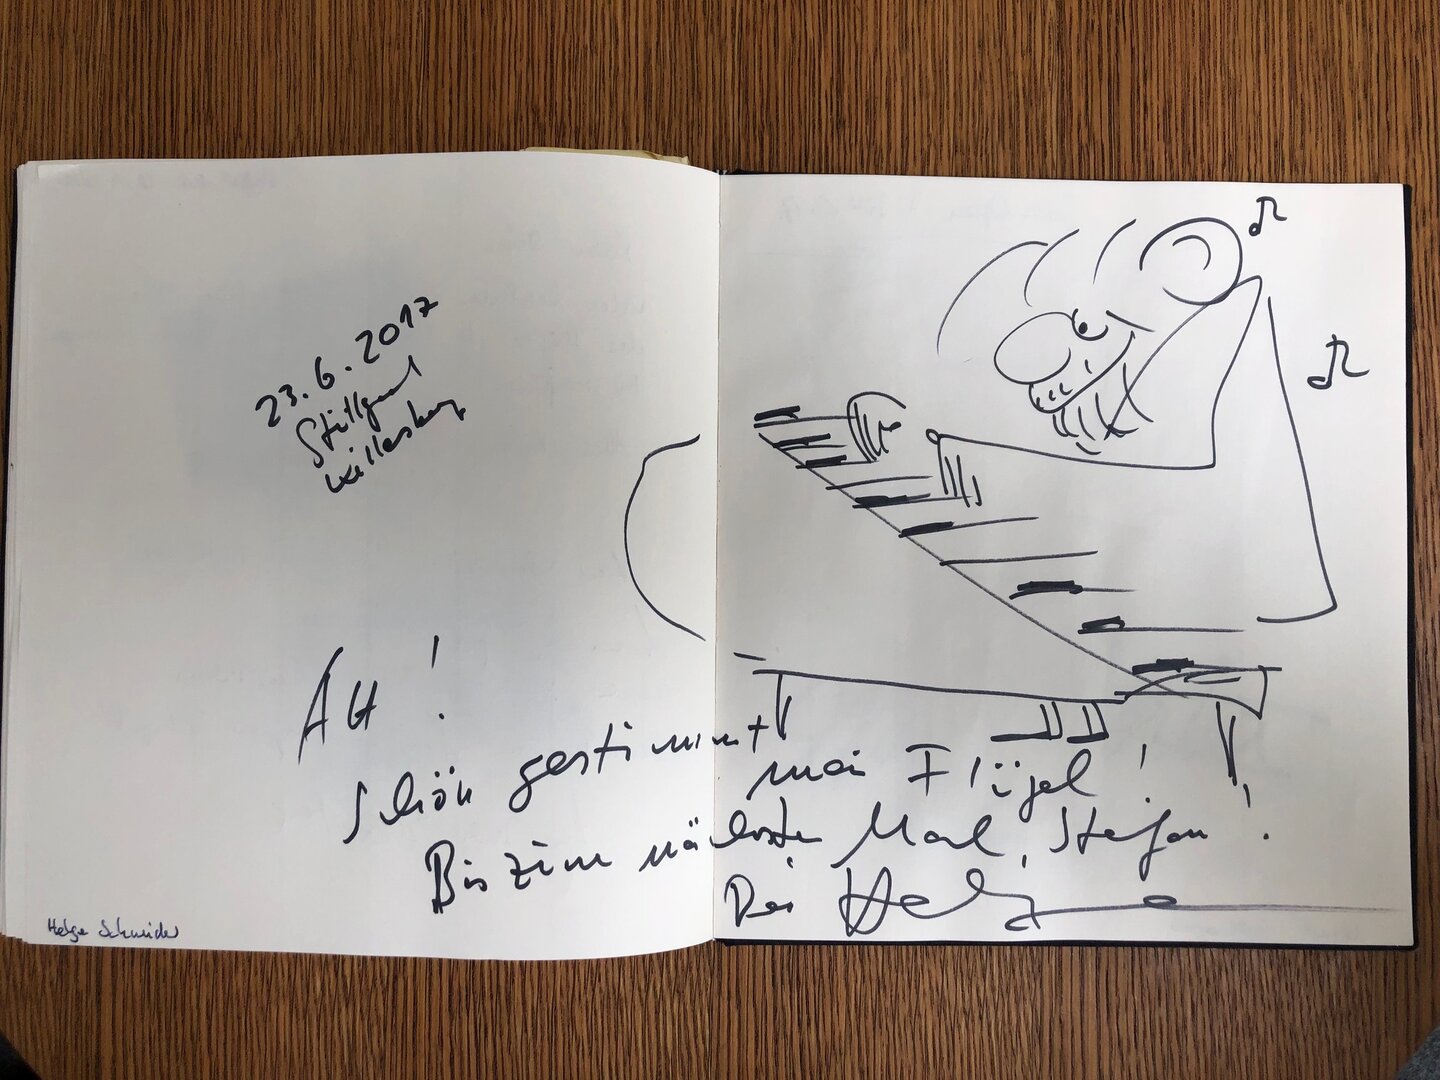 23.6.2017
Stuttgart
Killesberg
AH!
Schön gestimmt mei Flügel!
Bis zum nächsten Mal, Stefan!
Dei Helge
Helge Schneider